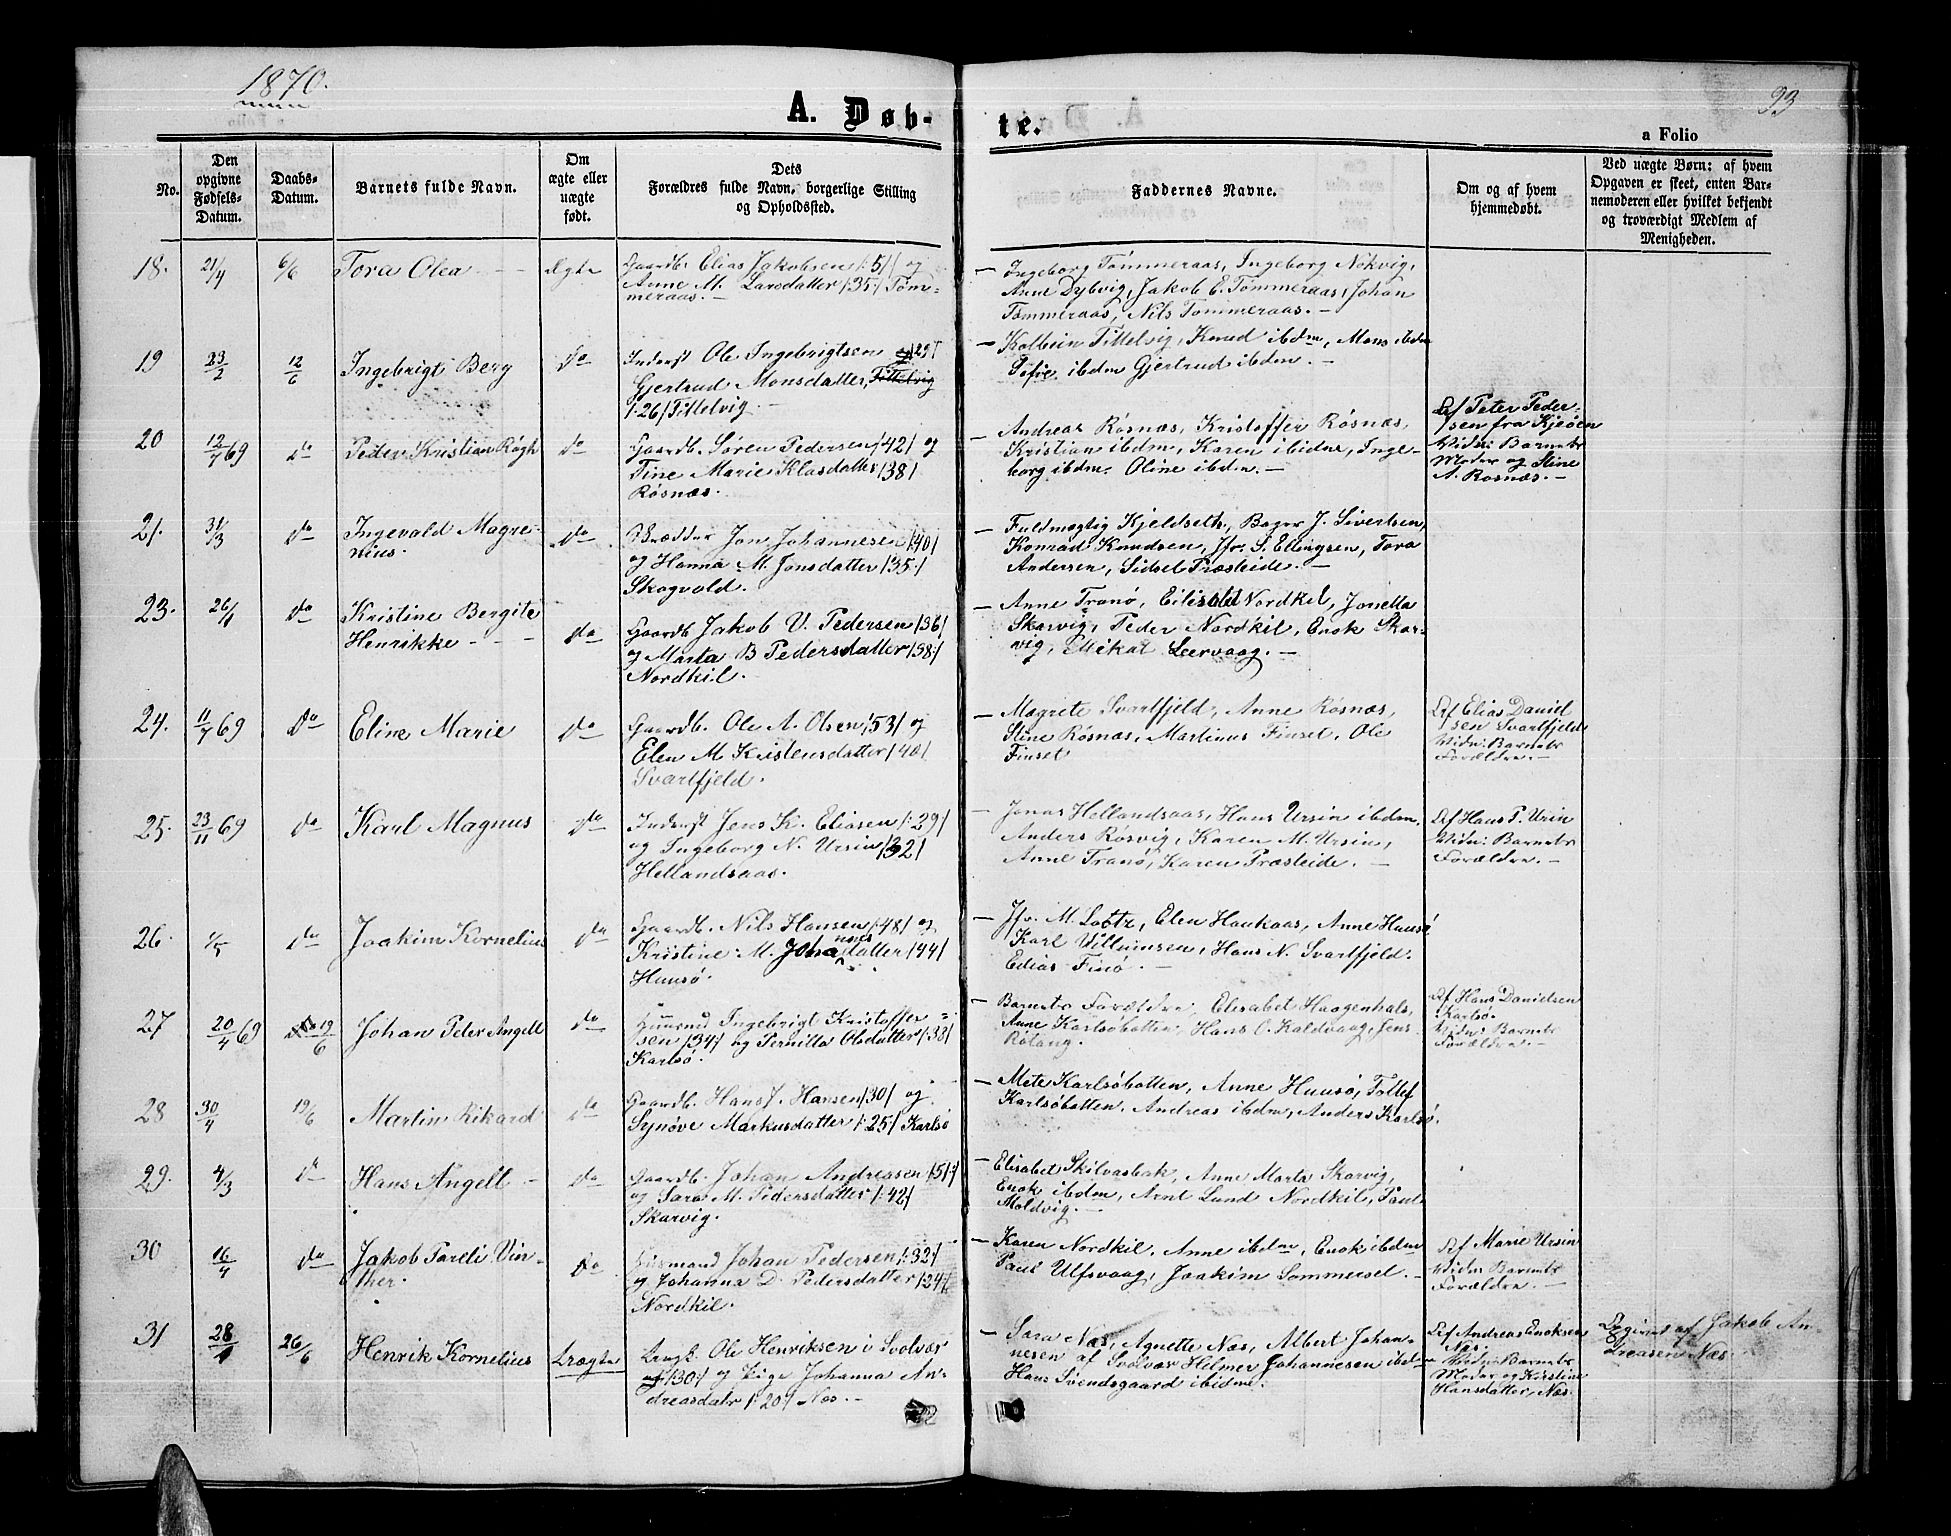 1870.
93
A. Døb-
te.
a Folio
No.
Den
opgivne
Fødsels-
Datum.
Daabs-
Datum.
Barnets fulde Navn.
Om
ægte eller
uægte
født.
Dets
Forældres fulde Navn, borgerlige Stilling
og Opholdssted.
Faddernes Navne.
Om og af hvem
hjemmedøbt.
Ved uægte Børn: af hvem
Opgaven er skeet, enten Bar-
nemoderen eller hvilket bekjendt
og troværdigt Medlem af
Menigheden.
18. 21/4 6/6 Tora Olea Ægte
Gaardb. Elias Jakobsen /:51/ og
Anne M. Larsdatter /35:/ Tøm-
meraas.
— Ingeborg Tømmeraas, Ingeborg Nökvig,
Anne Dybvig, Jakob E. Tømmeraas, Johan
Tømmeraas, Nils Tommeraas. —
19 23/2 12/6 Ingebrigt Berg do
Inderst Ole Ingebrigtsen /29/
Gjertrud Monsdatter, Tittelvig
/:26/ Tittelvig
— Kolbein Tittelvig, Knud ibdm, Mons ibdm
Sofie ibdm Gjertrud ibdm. —
20 12/7 69 do Peder Kristian Røgh do
Gaardb. Søren Pedersen /42/ og
Tine Marie Klasdatter /38/
Røsnæs.
Andreas Røsnæs, Kristoffer Røsnæs,
Kristian ibdm, Karen ibidm, Inge-
borg ibdm. Oline ibdm. —
Af Peter Peder-
sen fra Kjeøen
Vidn: Barnets
Moder og Stine
A. Rosnæs. —
21. 31/3 do Ingevald Magre-
nius. do
Skrædder Jon Johannesen /40/
og Hanna M. Jonsdatter /35:/
Skogvold.
— Fuldmægtig Kjeldseth, Bager J. Sivertsen,
Konrad Knudsen, Jfr. S. Ellingsen, Tora
Andersen, Sidsel Præsteide. —
23. 26/1 do Kristine Bergite
Henrikke do
Gaardb. Jakob U. Pedersen /36/
og Marta B Pedersdatter /38:/
Nordkil.
— Anne Tranø, Eilisabet Nordkil, Jonetta
Skarvig, Peder Nordkil, Enok Skar-
vig, Mikal Leervaag. —
24. 11/7 69 do Eline Marie do
Gaardb. Ole A. Olsen /53/ og
Elen M Kristensdatter /40/
Svartfjeld.
— Magrete Svartfjeld, Anne Røsnæs,
Stine Røsnæs, Martinus Finset, Ole
Finset
Af Elias Daniel
sen Svartfjeld
Vidn: Barnets
Forældre. —
25. 23/11 69 do Karl Magnus do
Inderst Jens K. Eliasen /:29/
og Ingeborg N. Ursin /32/
Hellandsaas.
— Jonas Hellandsaas, Hans Ursin ibdm,
Anders Røsvig, Karen M. Ursin,
Anne Tranø, Karen Præsteide. —
Af Hans P. Urin
Vidn: Barnets
Forældre. —
26. 1/5 do Joakim Kornelius do
Gaardb. Nils Hansen /48/ og
Kristine M. Johannesdatter /44/
Huusø
— Jfr. M. Lootz, Elen Haukaas, Anne Huusø
Karl Villumsen, Hans N. Svartfjeld.
Edias Finø. —
27 20/4 69 do 19/6 Johan Peter Angell do
Huusmd Ingebrigt Kristoffer-
sen /34:/ og Pernilla Olsdatter /:38/
Karlsø.
— Barnets Forældre, Elisabet Haagenhals,
Anne Karlsøbotten, Hans O. Kaldvaag, Jens
Rotang.
Af Hans Danielsen
Karlsø
Vidn: Barnets
Forældre. —
28 30/4 19/6 Martin Rikard do
Gaardb. Hans J. Hansen /30/ og
Synøve Markusdatter /:25/ Karlsø
— Mete Karlsøbotten, Anne Huusø, Tollef
Karlsøbotten, Andreas ibdm, Anders Karlsø.
29. 4/3 do Hans Angell do
Gaardb. Johan Andreasen /51:/
og Sara M. Pedersdatter /:42:/
Skarvig.
— Elisabet Skilvasbak, Anne Marta Skarvig,
Enok ibdm, Arnt Lund Nordkil, Paul
Moldvig. —
30 16/4 do Jakob Pareli Vin-
ther. do
Husmand Johan Pedersen /:32:/
og Johanna D. Pedersdatter /:24:/
Nordkil.
— Karen Nordkil, Anne ibdm, Enok ibdm
Paul Ulfsvaag, Joakim Sommersel. —
Af Marie Ursin
Vidn: Barnets
Forældre. —
31 28/1 26/6 Henrik Kornelius Uægte
Ungk. Ole Henriksen i Svolvær
/30:/ og Pige Johanna An-
dreasdatr /:20:/ Næs. —
— Sara Næs, Agnette Næs, Albert Johan-
nesen af Svolvær Helmer Johannesen ibdm
Hans Svendsgaard ibidm.
Af Andreas Enoksen
Næs.
Vidn: Barnets
Moder og Kirstine
Hansdatter, Næs.
Opgivet af Jakob An-
dreasen Næs.